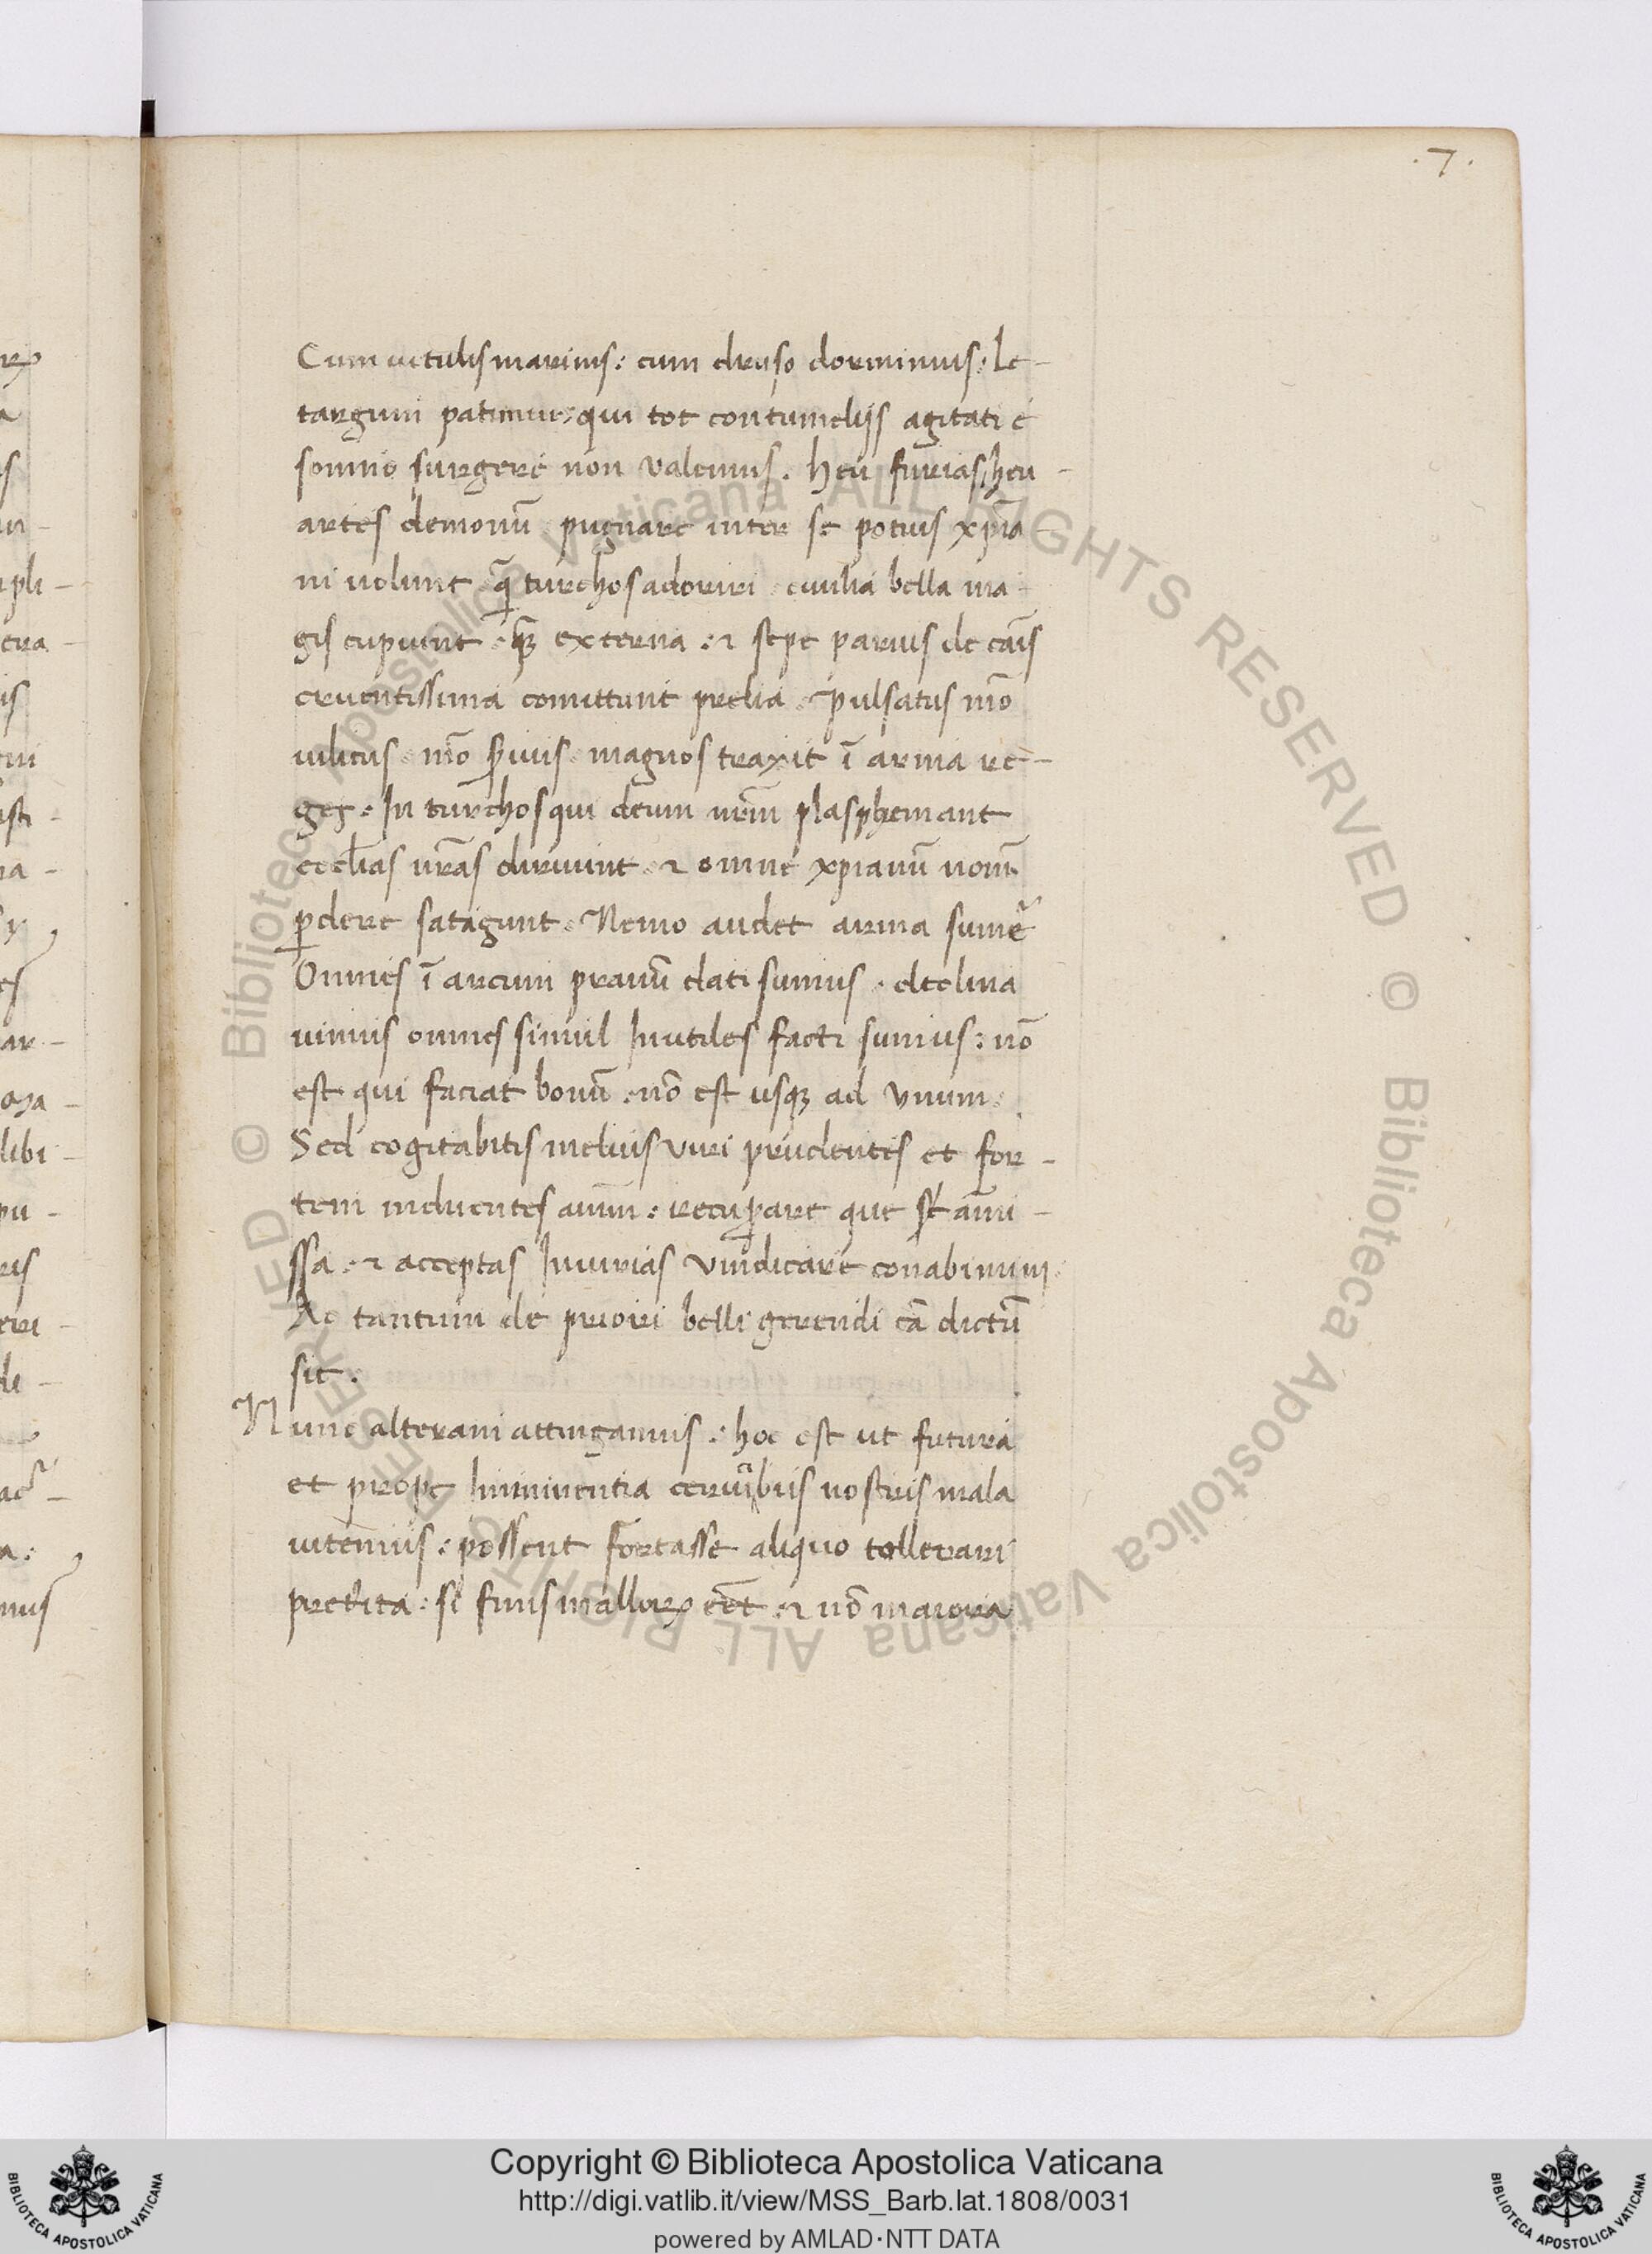 .7.
Cum uitulis marinis : cum druso dormimus : le-
targum patimur : qui tot contumelijs agitati é
somno surgeré non valemus . heu furias, heu
artes demonū pugnare inter se potius xp̄ia
ni uolunt q̄ turchos adoriri ciuilia bella ma
gis cupiunt quā externa . ⁊ sepe paruis de cāis
cruentissima comittunt prelia . Pulsatus mō
uilicus mō seruus magnos traxit ī arma re-
ges . In turchos qui deum nrm̄ plasphemant
eccl̄ias nrās diruunt ⁊ omné xpianū nom̄
ꝑdere satagunt . Nemo audet arma sumē
Omnes ī arcum prauū dati sumus . declina
uimus omnes simul Inutiles facti sumus : nō
est qui faciat bonū . nō est usqꝫ ad Vnum .
Sed cogitabitis melius viri prudentes et for-
tem induentes aīm : recuꝑare que sūt am̄i-
ssa . ⁊ acceptas Iniurias Vindicaré conabimini
Ac tantum de priori belli gerendi cā dictū
sit .
Nunc alteram attingamus . hoc est ut futura
et prope Imminentia ceruicibus nostris mala
uitemus : possent fortasse aliquo tollerari
preterita : si finis malloꝝ eēt . ⁊ nō maiora
© Biblioteca Apostolica Vaticana ALL RIGHTS RESERVED © Biblioteca Apostolica Vaticana ALL RIGHTS RESERVED
Copyright © Biblioteca Apostolica Vaticana
http://digi.vatlib.it/view/MSS_Barb.lat.1808/0031
powered by AMLAD·NTT DATA
BIBLIOTECA APOSTOLICA VATICANA
BIBLIOTECA APOSTOLICA VATICANA